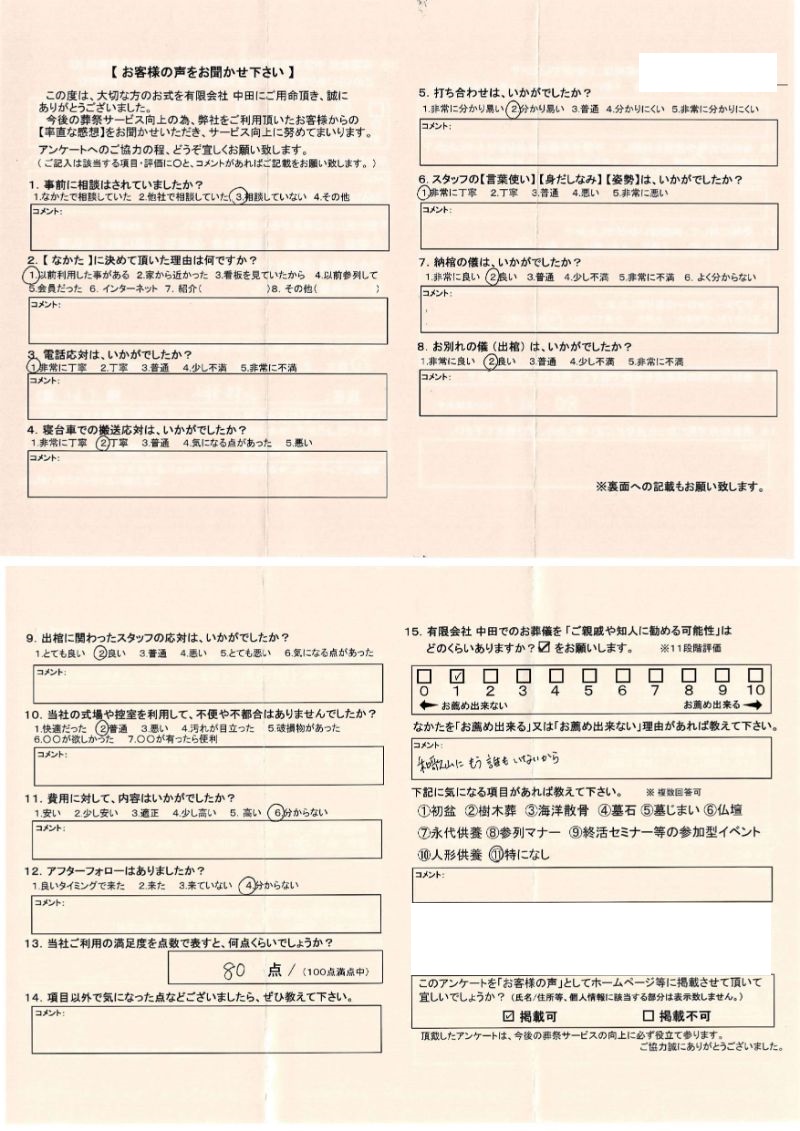 【 お客様の声をお聞かせ下さい 】
この度は、大切な方のお式を有限会社 中田にご用命頂き、誠に
ありがとうございました。
今後の葬祭サービス向上の為、弊社をご利用頂いたお客様からの
【率直な感想】をお聞かせいただき、サービス向上に努めてまいります。
アンケートへのご協力の程、どうぞ宜しくお願い致します。
( ご記入は該当する項目・評価に〇と、コメントがあればご記載をお願い致します。 )
1. 事前に相談はされていましたか?
1.なかたで相談していた 2.他社で相談していた 3.相談していない 4.その他
コメント:
2.【 なかた 】に決めて頂いた理由は何ですか?
1.以前利用した事がある 2.家から近かった 3.看板を見ていたから 4.以前参列して
5.会員だった 6. インターネット 7. 紹介( )8. その他( )
コメント:
3. 電話応対は、いかがでしたか?
1.非常に丁寧 2.丁寧 3.普通 4.少し不満 5.非常に不満
コメント:
4. 寝台車での搬送応対は、いかがでしたか?
1.非常に丁寧 2.丁寧 3.普通 4.気になる点があった 5.悪い
コメント:
5. 打ち合わせは、いかがでしたか?
1.非常に分かり易い 2.分かり易い 3.普通 4.分かりにくい 5.非常に分かりにくい
コメント:
6. スタッフの【言葉使い】【身だしなみ】【姿勢】は、いかがでしたか?
1.非常に丁寧 2.丁寧 3.普通 4.悪い 5.非常に悪い
コメント:
7. 納棺の儀は、いかがでしたか?
1.非常に良い 2.良い 3.普通 4.少し不満 5.非常に不満 6. よく分からない
コメント:
8. お別れの儀（出棺）は、いかがでしたか?
1.非常に良い 2.良い 3.普通 4.少し不満 5.非常に不満
コメント:
※裏面への記載もお願い致します。
9. 出棺に関わったスタッフの応対は、いかがでしたか?
1.とても良い 2.良い 3.普通 4.悪い 5.とても悪い 6.気になる点があった
コメント:
10. 当社の式場や控室を利用して、不便や不都合はありませんでしたか?
1.快適だった 2.普通 3.悪い 4.汚れが目立った 5.破損物があった
6.〇〇が欲しかった 7.〇〇が有ったら便利
コメント:
11. 費用に対して、内容はいかがでしたか?
1.安い 2.少し安い 3.適正 4.少し高い 5. 高い 6.分からない
コメント:
12. アフターフォローはありましたか?
1.良いタイミングで来た 2.来た 3.来ていない 4.分からない
コメント:
13. 当社ご利用の満足度を点数で表すと、何点くらいでしょうか?
80 点 / (100点満点中)
14. 項目以外で気になった点などございましたら、ぜひ教えて下さい。
コメント:
15. 有限会社 中田でのお葬儀を「ご親戚や知人に勧める可能性」は
どのくらいありますか? ☑ をお願いします。 ※11段階評価
0 1 2 3 4 5 6 7 8 9 10
お薦め出来ない お薦め出来る
なかたを「お薦め出来る」又は「お薦め出来ない」理由があれば教えて下さい。
コメント:
和歌山に もう 誰も いないから
下記に気になる項目があれば教えて下さい。 ※ 複数回答可
①初盆 ②樹木葬 ③海洋散骨 ④墓石 ⑤墓じまい ⑥仏壇
⑦永代供養 ⑧参列マナー ⑨終活セミナー等の参加型イベント
⑩人形供養 ⑪特になし
コメント:
このアンケートを「お客様の声」としてホームページ等に掲載させて頂いて
宜しいでしょうか? (氏名/住所等、個人情報に該当する部分は表示致しません。)
☑ 掲載可 ☐ 掲載不可
頂戴したアンケートは、今後の葬祭サービスの向上に必ず役立て参ります。
ご協力誠にありがとうございました。